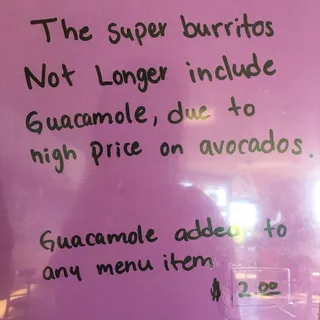 The super burritos
Not Longer include
Guacamole, due to
high price on avocados.
Guacamole added to
any menu item
$ 2.00